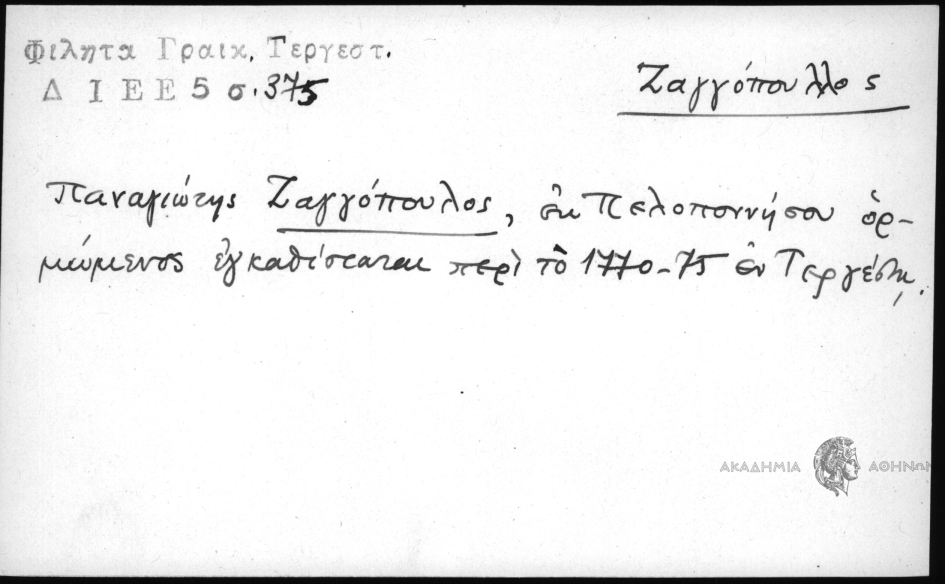 Φιλητα Γραικ, Τεργεστ.
Δ Ι Ε Ε 5 σ. 375
Ζαγγόπουλλος
Παναγιώτης Ζαγγόπουλος, ἐκ Πελοποννήσου ὁρ-
μώμενος ἐγκαθίσταται περὶ τὸ 1770-75 ἐν Τεργέστῃ.
ΑΚΑΔΗΜΙΑ ΑΘΗΝΩΝ